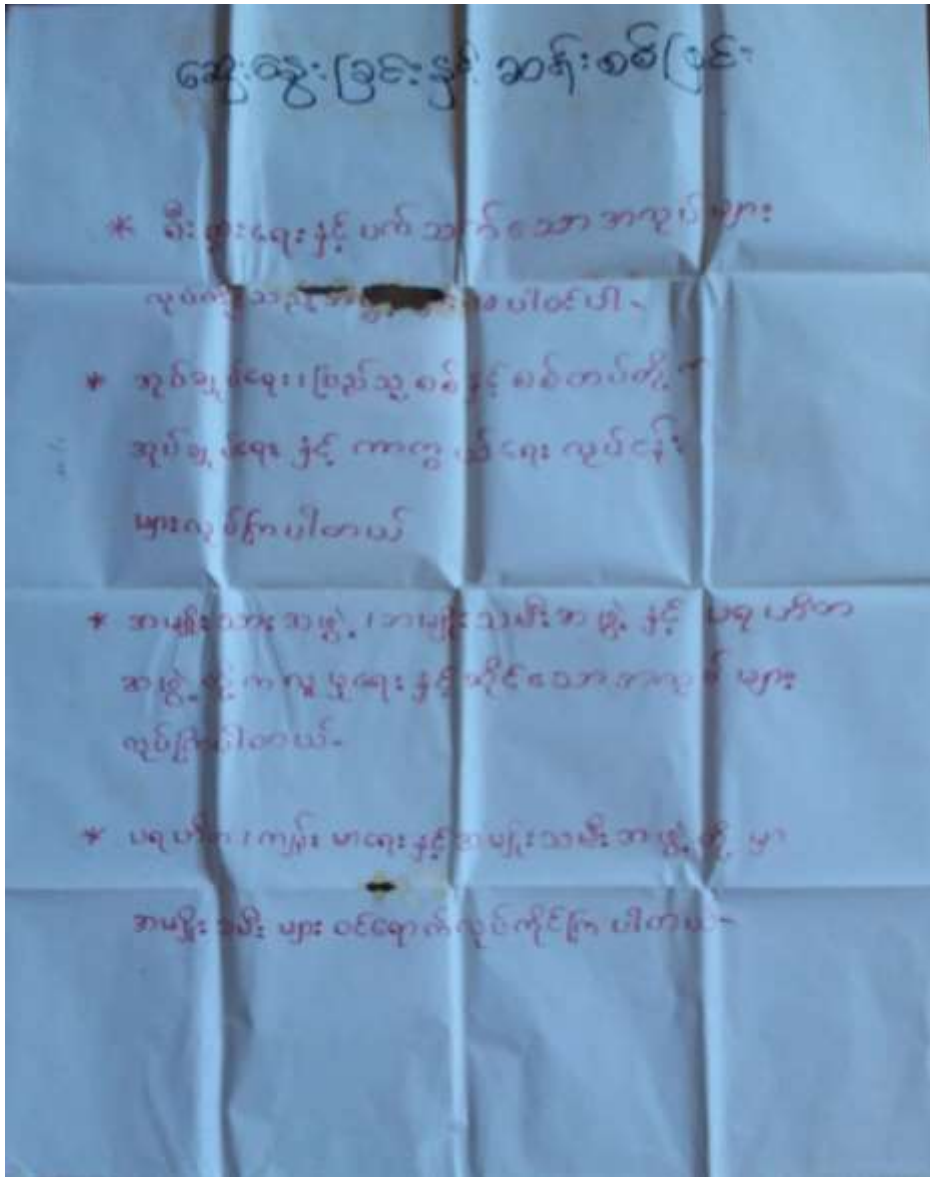 ဆွေးနွေးခြင်းနှင့် ဆန်းစစ်ခြင်း
* စီးပွားရေးနှင့် ပက်သက်သော အလုပ်များ
လုပ်ကိုင်သည့် မပါဝင်ပါ-
* အုပ်ချုပ်ရေး၊ ပြည်သူ့စစ်နှင့် စစ်တပ်တို့
အုပ်ချုပ်ရေးနှင့် ကာကွယ်ရေး လုပ်ငန်း
များလုပ်ကြပါတယ်
* အမျိုးသားအဖွဲ့၊ အမျိုးသမီးအဖွဲ့နှင့် ပရဟိတ
အဖွဲ့တို့က လူမှုရေးနှင့်ဆိုင်သောအလုပ်များ
လုပ်ကြပါတယ်-
* ပရဟိတ၊ ကျန်းမာရေးနှင့်အမျိုးသမီးအဖွဲ့တို့မှာ
အမျိုးသမီးများ ဝင်ရောက်လုပ်ကိုင်ကြပါတယ်-